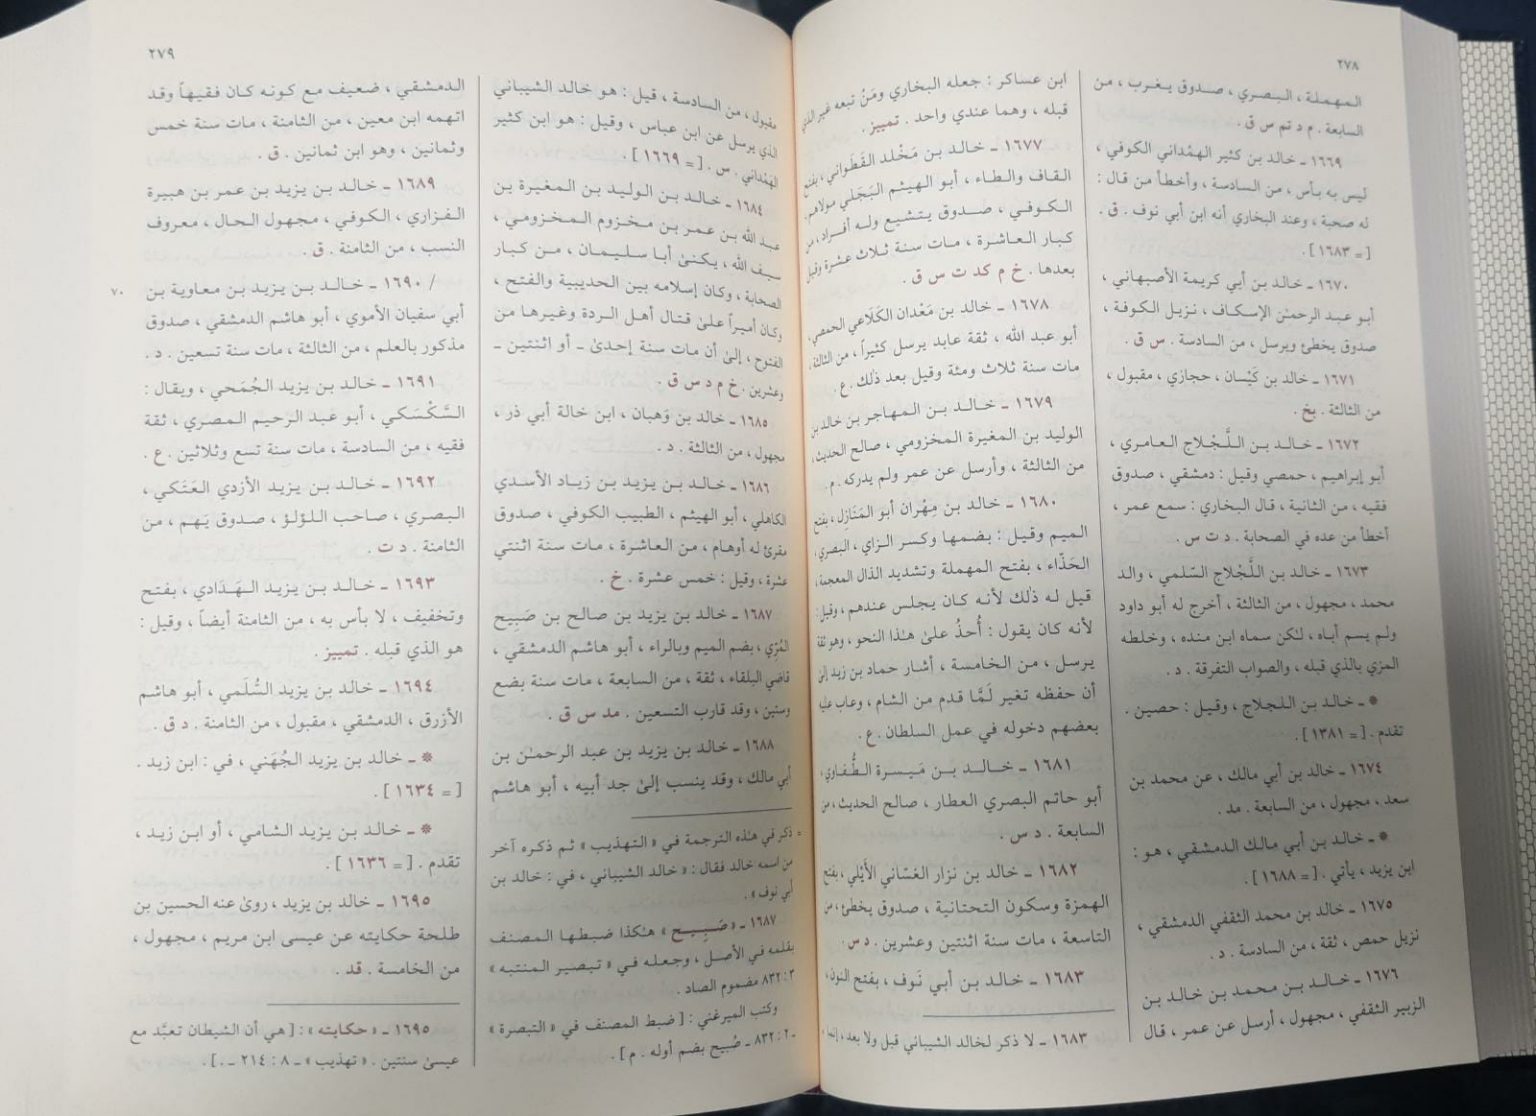 ٢٧٨
المهملة ، البصري ، صدوق يغرب ، من
السابعة . م د تم س ق .
١٦٦٩ ـ خالد بن كثير الهمْداني الكوفي ،
ليس به بأس ، من السادسة ، وأخطأ من قال :
له صحبة ، وعند البخاري أنه ابن أبي نوف . ق .
[ = ١٦٨٣ ] .
١٦٧٠ ـ خالد بن أبي كريمة الأصبهاني ،
أبو عبد الرحمن الإسكاف ، نزيل الكوفة ،
صدوق يخطئ ويرسل ، من السادسة . س ق .
١٦٧١ ـ خالد بن كَيْسان ، حجازي ، مقبول ،
من الثالثة . بخ .
١٦٧٢ ـ خالد بن اللَّجْلاج العامري ،
أبو إبراهيم ، حمصي وقيل : دمشقي ، صدوق
فقيه ، من الثانية ، قال البخاري : سمع عمر ،
أخطأ من عده في الصحابة . د ت س .
١٦٧٣ ـ خالد بن اللَّجْلاج السّلمي ، والد
محمد ، مجهول ، من الثالثة ، أخرج له أبو داود
ولم يسم أباه ، لكن سماه ابن منده ، وخلطه
المزي بالذي قبله ، والصواب التفرقة . د .
* ـ خالد بن اللجلاج ، وقيل : حصين .
تقدم . [ = ١٣٨١ ] .
١٦٧٤ ـ خالد بن أبي مالك ، عن محمد بن
سعد ، مجهول ، من السابعة . مد .
* ـ خالد بن أبي مالك الدمشقي ، هو :
ابن يزيد ، يأتي . [ = ١٦٨٨ ] .
١٦٧٥ ـ خالد بن محمد الثقفي الدمشقي ،
نزيل حمص ، ثقة ، من السادسة . د .
١٦٧٦ ـ خالد بن محمد بن خالد بن
الزبير الثقفي ، مجهول ، أرسل عن عمر ، قال
ابن عساكر : جعله البخاري ومَنْ تبعه غير الذي
قبله ، وهما عندي واحد . تمييز .
١٦٧٧ ـ خالد بن مَخْلد القَطَواني ، بفتح
القاف والطاء ، أبو الهيثم البَجَلي مولاهم ،
الكوفي ، صدوق يتشيع وله أفراد ، من
كبار العاشرة ، مات سنة ثلاث عشرة وقيل
بعدها . خ م كد ت س ق .
١٦٧٨ ـ خالد بن مَعْدان الكَلَاعي الحمصي ،
أبو عبد الله ، ثقة عابد يرسل كثيراً ، من الثالثة ،
مات سنة ثلاث ومئة وقيل بعد ذلك . ع .
١٦٧٩ ـ خالد بن المهاجر بن خالد بن
الوليد بن المغيرة المخزومي ، صالح الحديث ،
من الثالثة ، وأرسل عن عمر ولم يدركه . م .
١٦٨٠ ـ خالد بن مِهْران أبو المَنَازل ، بفتح
الميم وقيل : بضمها وكسر الزاي ، البصري ،
الحَذّاء ، بفتح المهملة وتشديد الذال المعجمة ،
قيل له ذلك لأنه كان يجلس عندهم ، وقيل :
لأنه كان يقول : أُحذُ علىٰ هٰذا النحو ، وهو ثقة
يرسل ، من الخامسة ، أشار حماد بن زيد إلىٰ
أن حفظه تغير لَمَّا قدم من الشام ، وعاب عليه
بعضهم دخوله في عمل السلطان . ع .
١٦٨١ ـ خالد بن مَيسرة الطُّفاوي ،
أبو حاتم البصري العطار ، صالح الحديث ، من
السابعة . د س .
١٦٨٢ ـ خالد بن نزار الغسّاني الأَيْلي ، بفتح
الهمزة وسكون التحتانية ، صدوق يخطئ ، من
التاسعة ، مات سنة اثنتين وعشرين . د س .
١٦٨٣ ـ خالد بن أبي نَوف ، بفتح النون ،
١٦٨٣ ـ لا ذكر لخالد الشيباني قبل ولا بعد ، إنما =
٢٧٩
مقبول ، من السادسة ، قيل : هو خالد الشيباني
الذي يرسل عن ابن عباس ، وقيل : هو ابن كثير
الهَمْداني . س . [ = ١٦٦٩ ] .
١٦٨٤ ـ خالد بن الوليد بن المغيرة بن
عبد الله بن عمر بن مخزوم المخزومي ،
سيف الله ، يكنىٰ أبا سليمان ، من كبار
الصحابة ، وكان إسلامه بين الحديبية والفتح ،
وكان أميراً علىٰ قتال أهل الردة وغيرها من
الفتوح ، إلىٰ أن مات سنة إحدىٰ ـ أو اثنتين ـ
وعشرين . خ م د س ق .
١٦٨٥ ـ خالد بن وَهبان ، ابن خالة أبي ذر ،
مجهول ، من الثالثة . د .
١٦٨٦ ـ خالد بن يزيد بن زياد الأسدي
الكاهلي ، أبو الهيثم ، الطبيب الكوفي ، صدوق
مقرئ له أوهام ، من العاشرة ، مات سنة اثنتي
عشرة ، وقيل : خمس عشرة . خ .
١٦٨٧ ـ خالد بن يزيد بن صالح بن صَبِيح
المُرّي ، بضم الميم وبالراء ، أبو هاشم الدمشقي ،
قاضي البلقاء ، ثقة ، من السابعة ، مات سنة بضع
وستين ، وقد قارب التسعين . مد س ق .
١٦٨٨ ـ خالد بن يزيد بن عبد الرحمٰن بن
أبي مالك ، وقد ينسب إلىٰ جد أبيه ، أبو هاشم
= ذكر في هٰذه الترجمة في « التهذيب » ثم ذكره آخر
من اسمه خالد فقال : « خالد الشيباني ، في : خالد بن
أبي نوف » .
١٦٨٧ ـ « صَبِيح » هٰكذا ضبطها المصنف
بقلمه في الأصل ، وجعله في « تبصير المنتبه »
٣ : ٨٣٢ مضموم الصاد .
وكتب الميرغني : [ ضبط المصنف في « التبصرة »
ـ ٢ : ٨٣٢ ـ صُبيح بضم أوله . م ] .
الدمشقي ، ضعيف مع كونه كان فقيهاً وقد
اتهمه ابن معين ، من الثامنة ، مات سنة خمس
وثمانين ، وهو ابن ثمانين . ق .
١٦٨٩ ـ خالد بن يزيد بن عمر بن هبيرة
الفزاري ، الكوفي ، مجهول الحال ، معروف
النسب ، من الثامنة . ق .
٧٠ / ١٦٩٠ ـ خالد بن يزيد بن معاوية بن
أبي سفيان الأموي ، أبو هاشم الدمشقي ، صدوق
مذكور بالعلم ، من الثالثة ، مات سنة تسعين . د .
١٦٩١ ـ خالد بن يزيد الجُمَحي ، ويقال :
السَّكْسَكي ، أبو عبد الرحيم المصري ، ثقة
فقيه ، من السادسة ، مات سنة تسع وثلاثين . ع .
١٦٩٢ ـ خالد بن يزيد الأزدي العَتَكي ،
البصري ، صاحب اللؤلؤ ، صدوق يَهم ، من
الثامنة . د ت .
١٦٩٣ ـ خالد بن يزيد الهَدَادي ، بفتح
وتخفيف ، لا بأس به ، من الثامنة أيضاً ، وقيل :
هو الذي قبله . تمييز .
١٦٩٤ ـ خالد بن يزيد السُّلَمي ، أبو هاشم
الأزرق ، الدمشقي ، مقبول ، من الثامنة . د ق .
* ـ خالد بن يزيد الجُهَني ، في : ابن زيد .
[ = ١٦٣٤ ] .
* ـ خالد بن يزيد الشامي ، أو ابن زيد ،
تقدم . [ = ١٦٣٦ ] .
١٦٩٥ ـ خالد بن يزيد ، روىٰ عنه الحسين بن
طلحة حكايته عن عيسى ابن مريم ، مجهول ،
من الخامسة . قد .
١٦٩٥ ـ « حكايته » : [ هي أن الشيطان تعبَّد مع
عيسىٰ سنتين . « تهذيب » ـ ٨ : ٢١٤ ـ . ] .